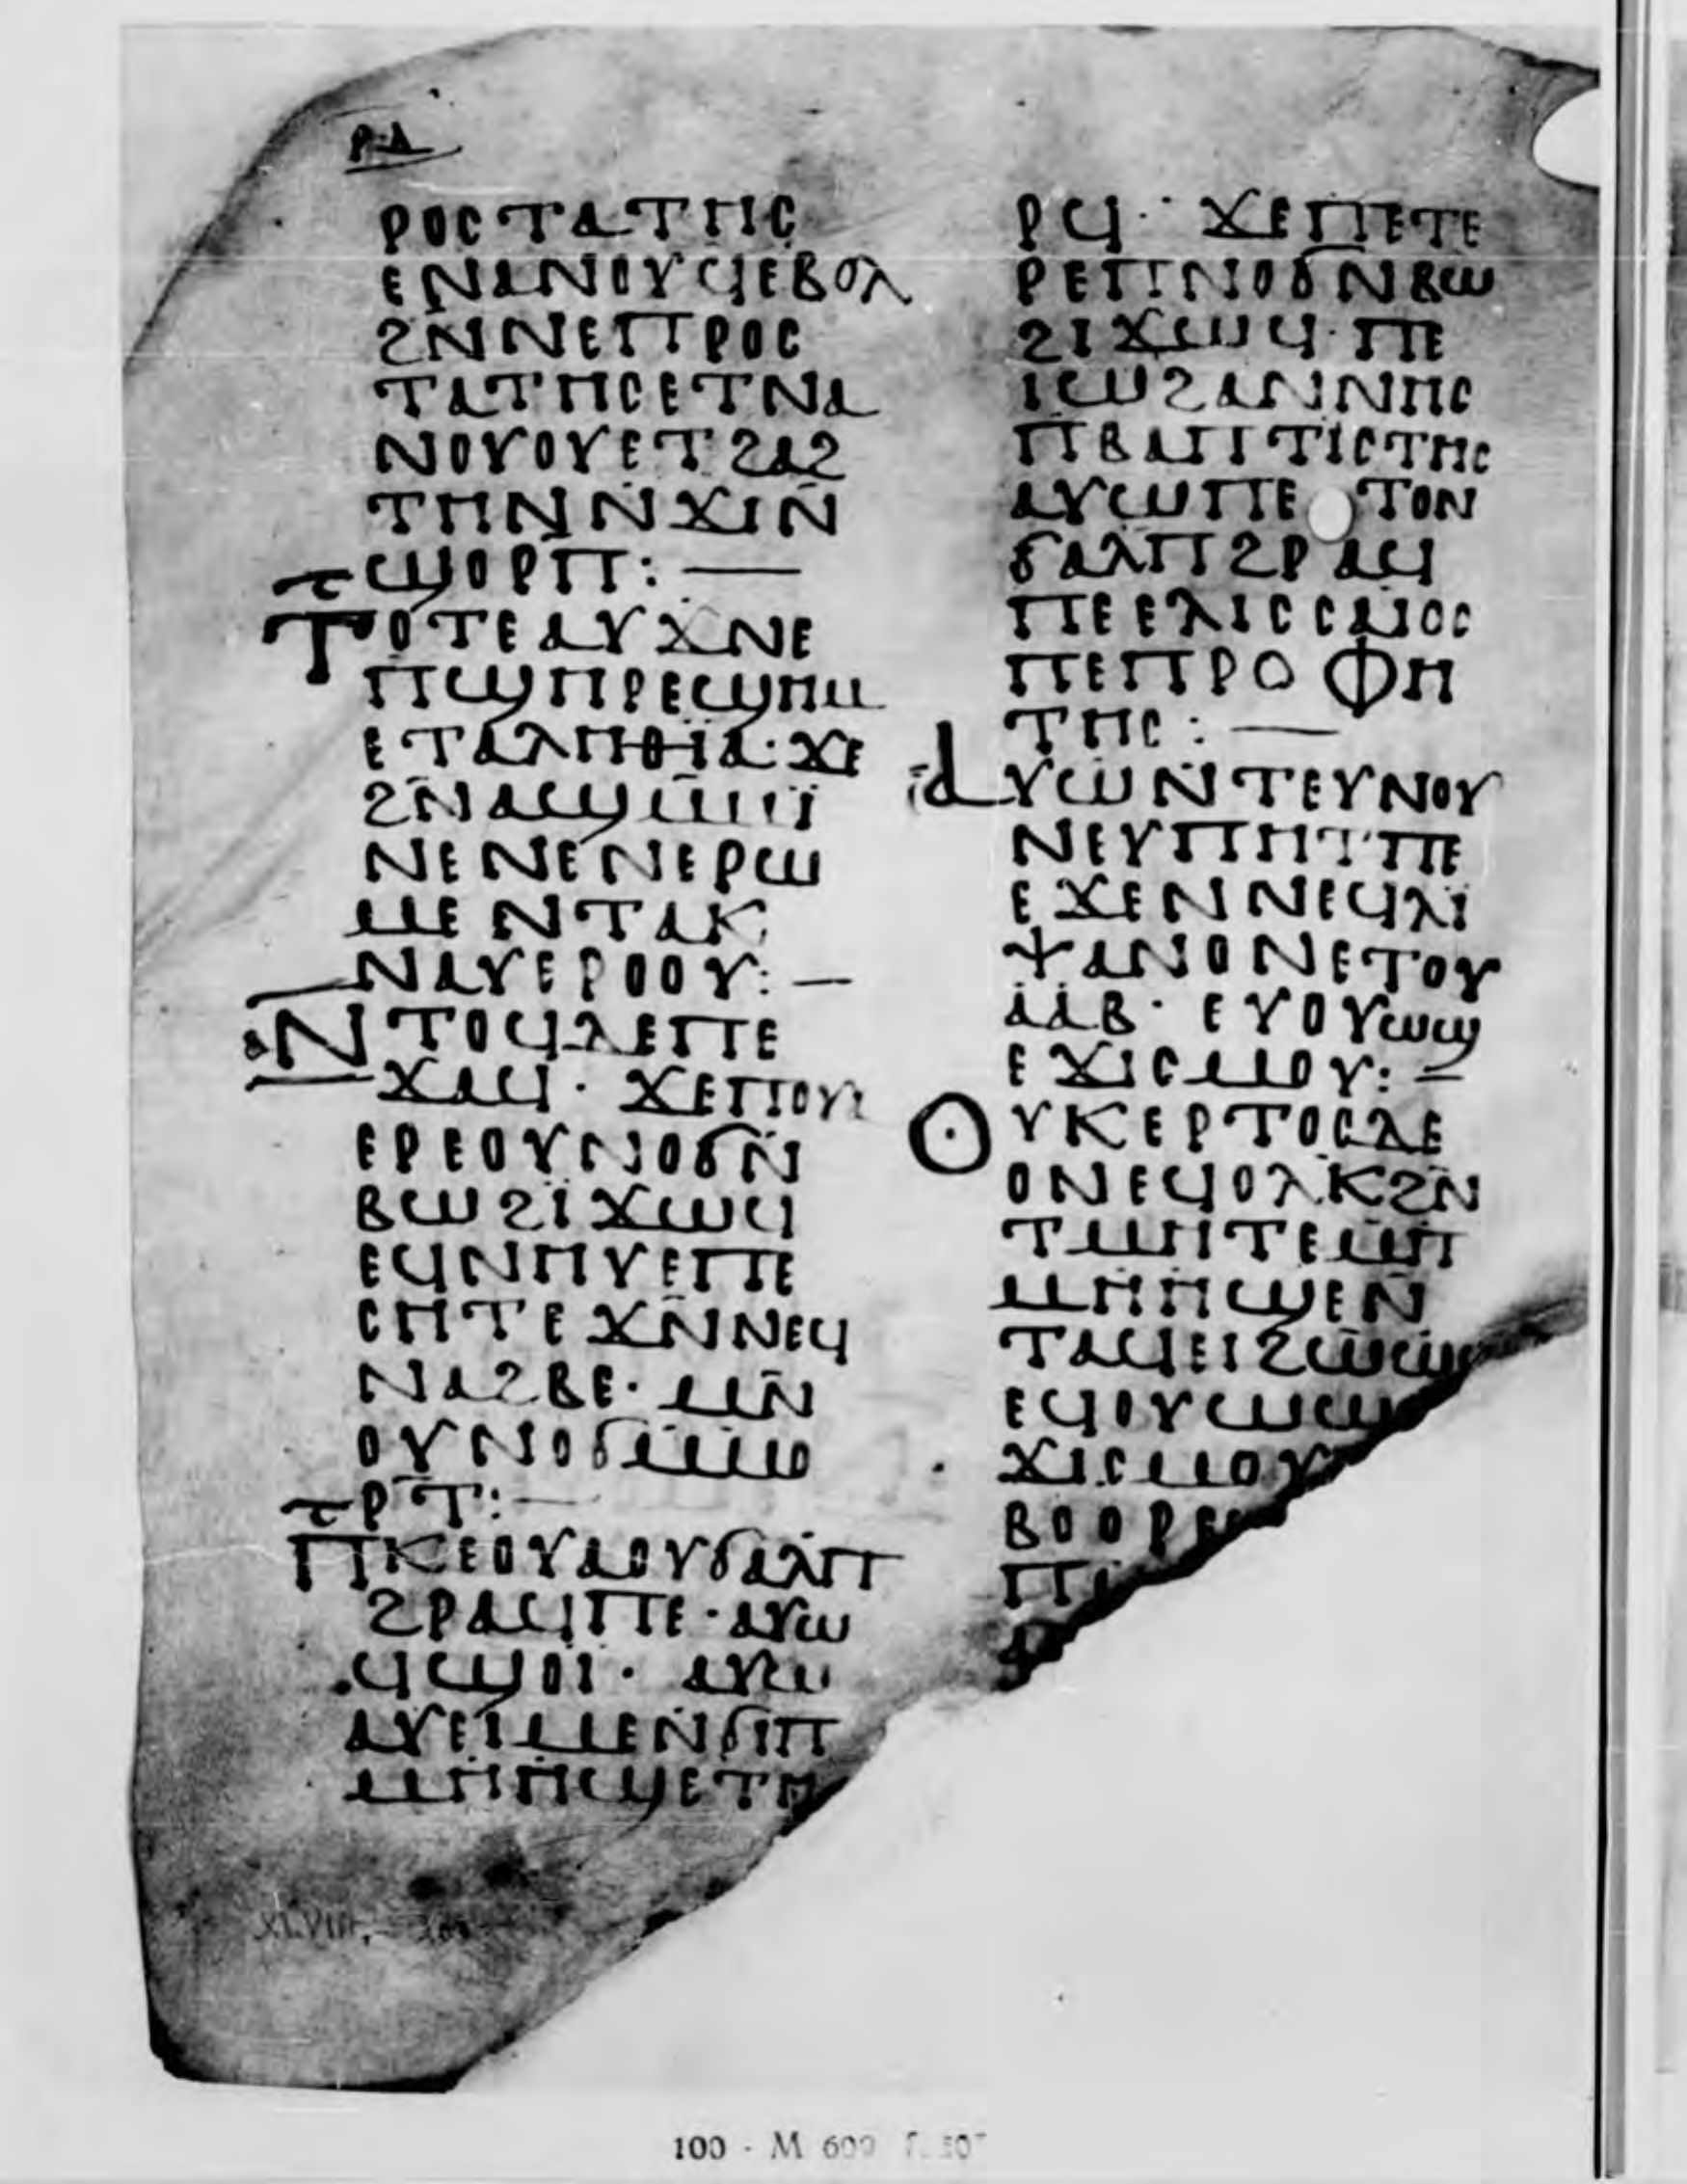 ⲣⲇ
ⲣⲟⲥⲧⲁⲧⲏⲥ
ⲉⲛⲁⲛⲟⲩϥⲉⲃⲟⲗ
ϩⲛⲛⲉⲡⲣⲟⲥ
ⲧⲁⲧⲏⲥⲉⲧⲛⲁ
ⲛⲟⲩⲟⲩⲉⲧϩⲁϩ
ⲧⲏⲛⲛϫⲓⲛ̄
ϣⲟⲣⲡ̄:—
ⲧⲟⲧⲉⲁⲩϫⲛⲉ
ⲡϣⲏⲣⲉϣⲏⲙ
ⲉⲧⲁⲗⲏⲑⲓⲁ·ϫⲉ
ϩⲛ̄ⲁϣⲙ̄ⲙⲓ
ⲛⲉⲛⲉⲛⲉⲣⲱ
ⲙⲉⲛⲧⲁⲕ
ⲛⲁⲩⲉⲣⲟⲟⲩ:—
ⲛⲧⲟϥⲇⲉⲡⲉ
ϫⲁϥ· ϫⲉⲡⲟⲩⲓ
ⲉⲣⲉⲟⲩⲛⲟϭⲛ̄
ⲃⲱϩⲓϫⲱϥ
ⲉϥⲛⲏⲩⲉⲡⲉ
ⲥⲏⲧⲉϫⲛ̄ⲛⲉϥ
ⲛⲁϩⲃⲉ· ⲙⲛ̄
ⲟⲩⲛⲟϭⲙ̄ⲙⲟ
ⲣ̄ⲧ:—
ⲡⲕⲉⲟⲩⲁⲟⲩϭⲁⲗⲡ
ϩⲣⲁϥⲡⲉ·ⲁⲩⲱ
ϥϣⲟⲓ· ⲁⲩⲱ
ⲁⲩⲉⲓⲙⲉⲛϭⲓⲡ
ⲙⲏⲏϣⲉⲧⲏ
ⲣϥ· ϫⲉⲡⲉⲧⲉ
ⲣⲉⲡⲛⲟϭⲛⲃⲱ
ϩⲓϫⲱϥ·ⲡⲉ
ⲓⲱϩⲁⲛⲛⲏⲥ
ⲡⲃⲁⲡⲧⲓⲥⲧⲏⲥ
ⲁⲩⲱⲡⲉ ⲧⲟⲛ
ϭⲁⲗⲡϩⲣⲁϥ
ⲡⲉⲉⲗⲓⲥⲥⲁⲓⲟⲥ
ⲡⲉⲡⲣⲟⲫⲏ
ⲧⲏⲥ:—
ⲁⲩⲱⲛⲧⲉⲩⲛⲟⲩ
ⲛⲉⲩⲡⲏⲧⲡⲉ
ⲉϫⲉⲛⲛⲉϥⲗⲓ
ⲯⲁⲛⲟⲛⲉⲧⲟⲩ
ⲁⲁⲃ· ⲉⲩⲟⲩⲱϣ
ⲉϫⲓⲥⲙⲟⲩ:—
ⲟⲩⲕⲉⲣⲧⲟⲥⲇⲉ
ⲟⲛⲉϥⲟⲗⲕϩⲛ
ⲧⲙⲏⲧⲉⲙ̄ⲡ
ⲙⲏⲏϣⲉⲛ̄
ⲧⲁϥⲉⲓϩⲱⲱϥ
ⲉϥⲟⲩⲱϣ
ϫⲓⲥⲙⲟⲩ
ⲃⲟⲟⲣ
100 - M 609